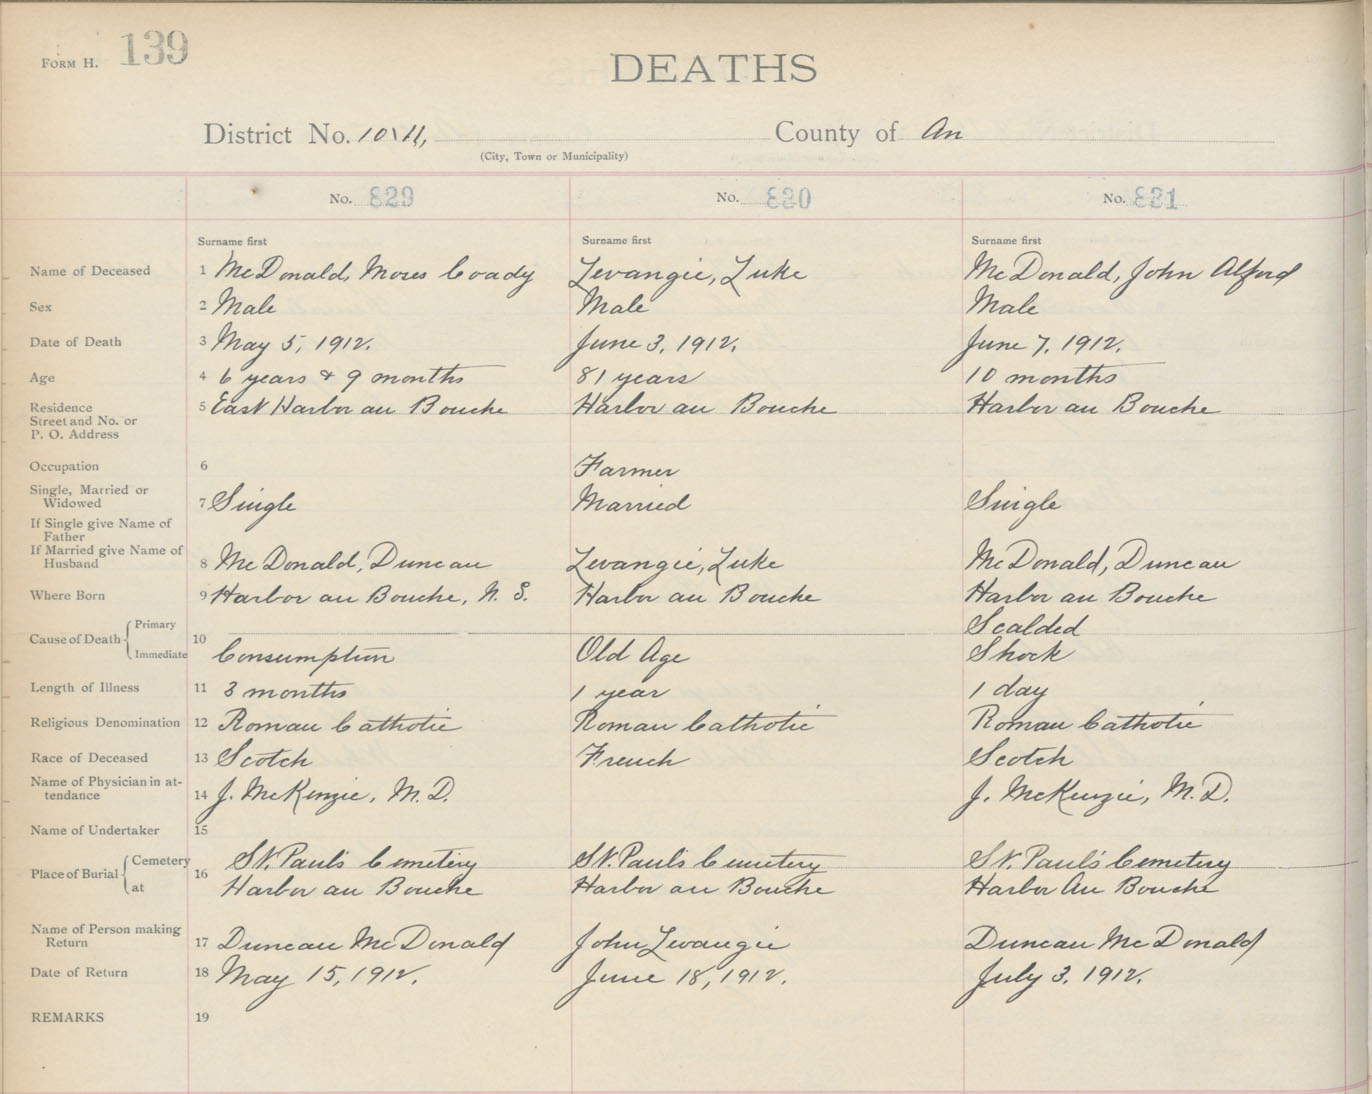 FORM H. 139
DEATHS
District No. 10\11, County of An
(City, Town or Municipality)
No. 829 No. 830 No. 831
Surname first Surname first Surname first
Name of Deceased 1 McDonald, Moses Coady Levangie, Luke McDonald, John Alford
Sex 2 Male Male Male
Date of Death 3 May 5, 1912. June 3, 1912. June 7, 1912.
Age 4 6 years & 9 months 81 years 10 months
Residence 5 East Harbor au Bouche Harbor au Bouche Harbor au Bouche
Street and No. or
P. O. Address
Occupation 6 Farmer
Single, Married or
Widowed 7 Single Married Single
If Single give Name of
Father
If Married give Name of
Husband 8 McDonald, Duncan Levangie, Luke McDonald, Duncan
Where Born 9 Harbor au Bouche, N. S. Harbor au Bouche Harbor au Bouche
Cause of Death Primary 10 Scalded
Immediate Consumption Old Age Shock
Length of Illness 11 3 months 1 year 1 day
Religious Denomination 12 Roman Catholic Roman Catholic Roman Catholic
Race of Deceased 13 Scotch French Scotch
Name of Physician in at-
tendance 14 J. McKenzie, M.D. J. McKenzie, M.D.
Name of Undertaker 15
Place of Burial Cemetery 16 St. Paul's Cemetery St. Paul's Cemetery St. Paul's Cemetery
at Harbor au Bouche Harbor au Bouche Harbor Au Bouche
Name of Person making
Return 17 Duncan McDonald John Levangie Duncan McDonald
Date of Return 18 May 15, 1912. June 18, 1912. July 3, 1912.
REMARKS 19